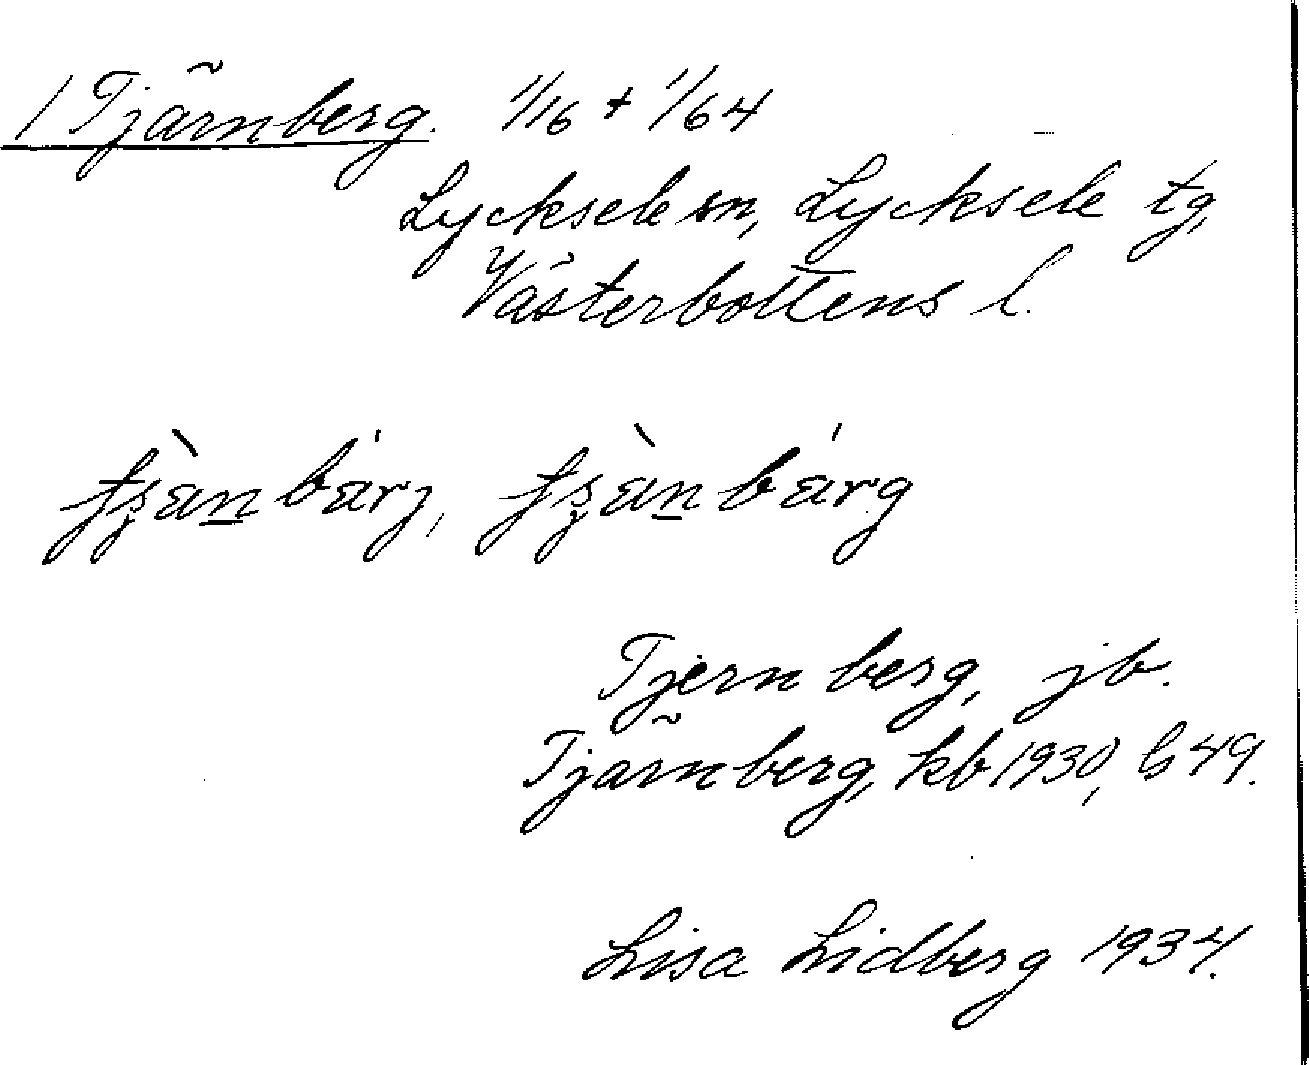 / Tjärnberg. 1/16 + 1/64
Lycksele sn, Lycksele tg,
Västerbottens l.
Tjernberg, jb.
Tjärnberg, kb 1930, b 49.
Lisa Lidberg 1934.